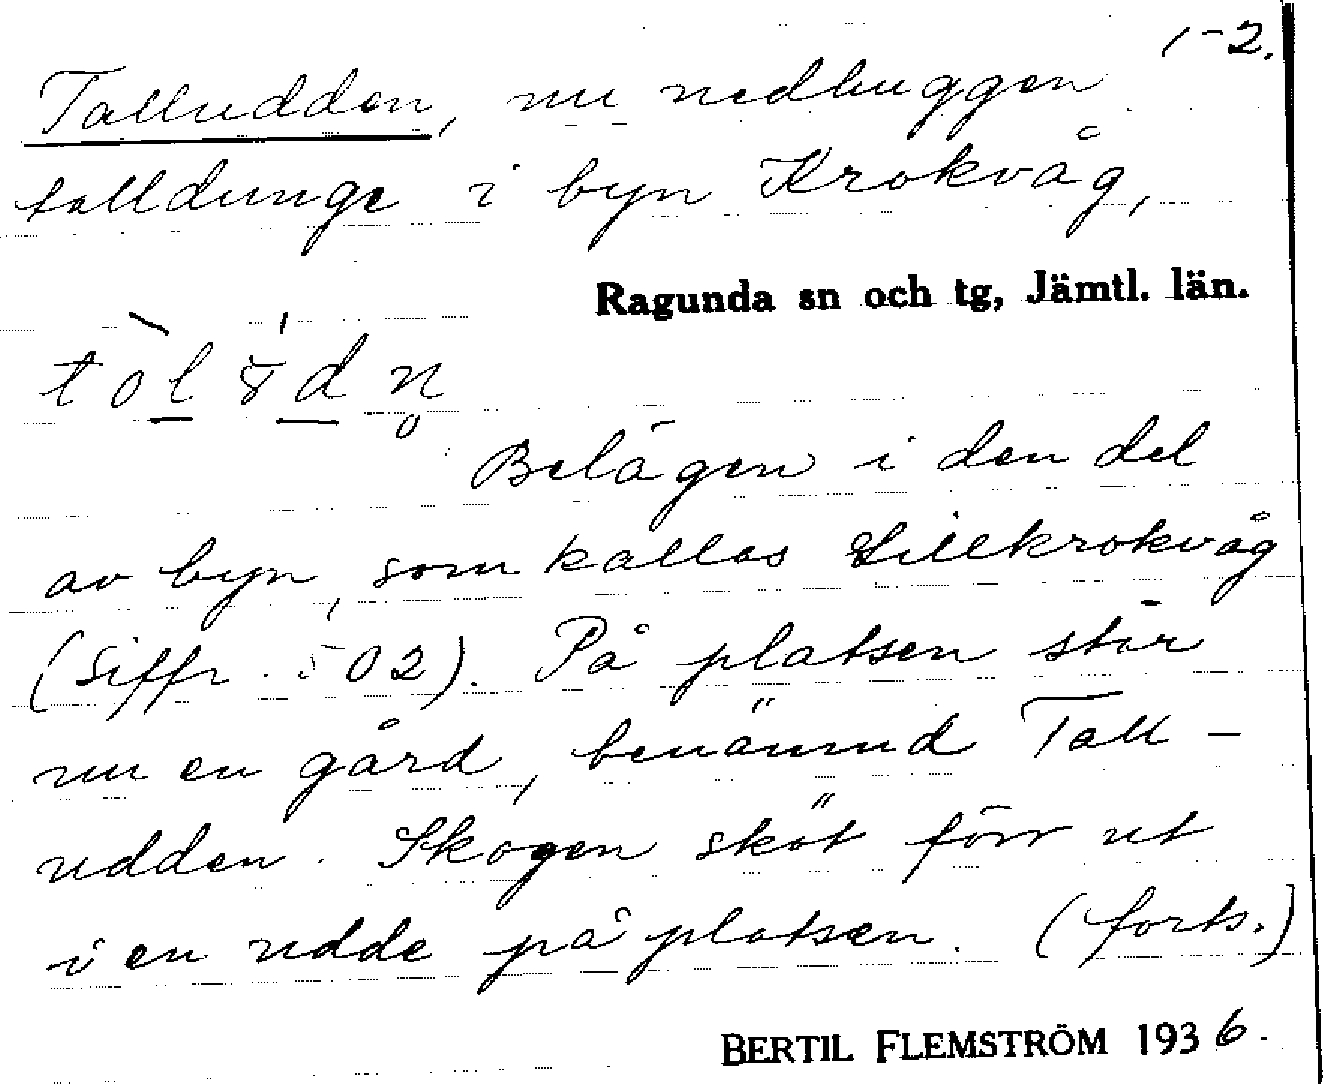 1-2.
Talludden, nu nedhuggen
talldunge i byn Krokvåg,
Ragunda sn och tg, Jämtl. län.
Belägen i den del
av byn, som kallas Lillkrokvåg
(siffr. 502). På platsen står
nu en gård, benämnd Tall-
udden. Skogen sköt förr ut
i en udde på platsen. (forts.)
BERTIL FLEMSTRÖM 1936.